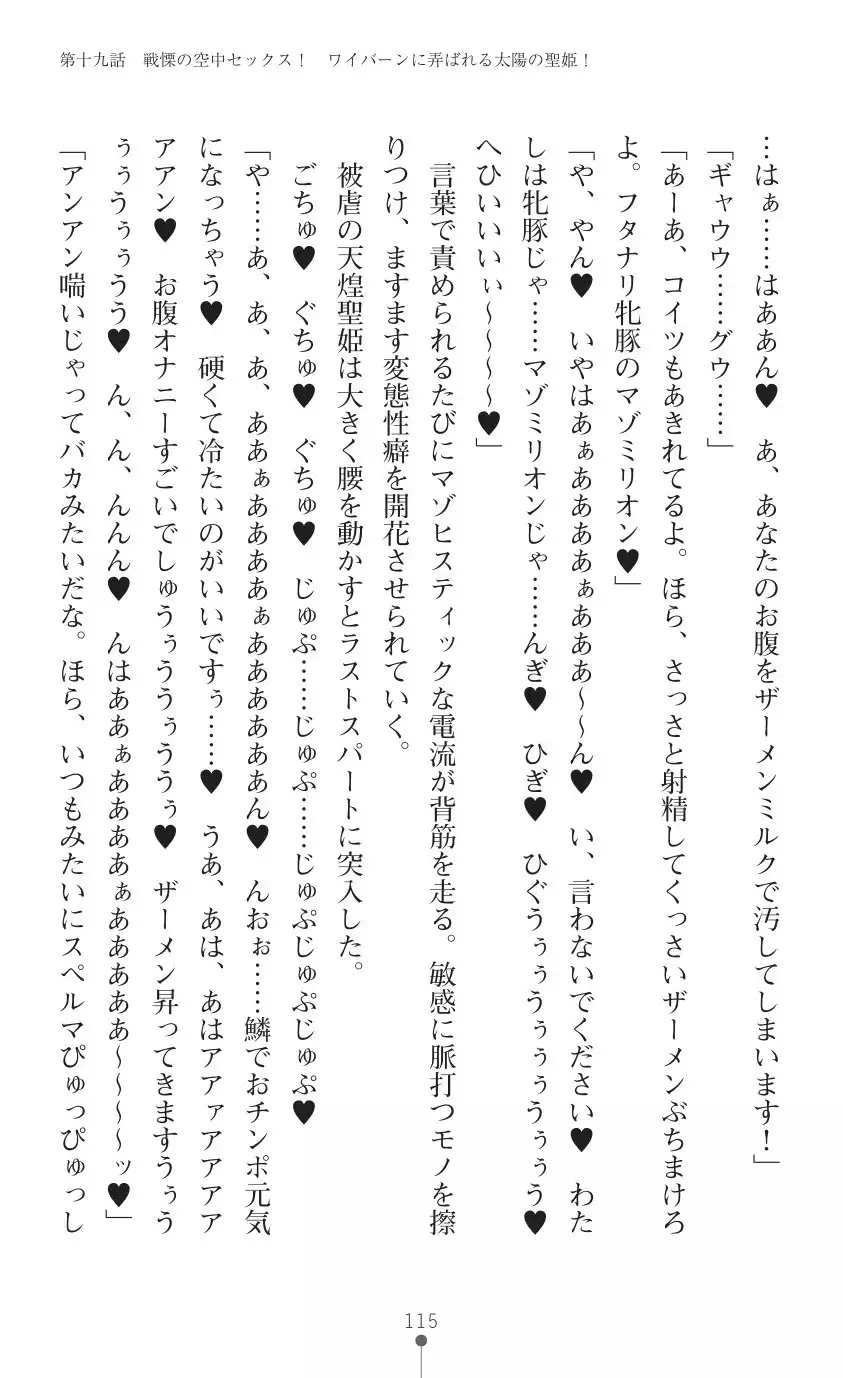 第十九話　戦慄の空中セックス！　ワイバーンに弄ばれる太陽の聖姫！
…はぁ……はああん♥　あ、あなたのお腹をザーメンミルクで汚してしまいます！」
「ギャウウ……グウ……」
「あーあ、コイツもあきれてるよ。ほら、さっさと射精してくっさいザーメンぶちまけろ
よ。フタナリ牝豚のマゾミリオン♥」
「や、やん♥　いやはあぁああああぁあああ～～ん♥　い、言わないでください♥　わた
しは牝豚じゃ……マゾミリオンじゃ……んぎ♥　ひぎ♥　ひぐうぅぅうぅぅぅうぅぅう♥
へひいいいぃ～～～～♥」
　言葉で責められるたびにマゾヒスティックな電流が背筋を走る。敏感に脈打つモノを擦
りつけ、ますます変態性癖を開花させられていく。
　被虐の天煌聖姫は大きく腰を動かすとラストスパートに突入した。
　ごちゅ♥　ぐちゅ♥　ぐちゅ♥　じゅぷ……じゅぷ……じゅぷじゅぷじゅぷ♥
「や……あ、あ、あ、ああぁああああぁああああああん♥　んおぉ……鱗でおチンポ元気
になっちゃう♥　硬くて冷たいのがいいですぅ……♥　うあ、あは、あはアアァアアアア
アアン♥　お腹オナニーすごいでしゅうぅううぅううぅ♥　ザーメン昇ってきますうぅう
ぅぅうぅぅうう♥　ん、ん、んんん♥　んはああぁああああぁあああああ～～～～ッ♥」
「アンアン喘いじゃってバカみたいだな。ほら、いつもみたいにスペルマぴゅっぴゅっし
115